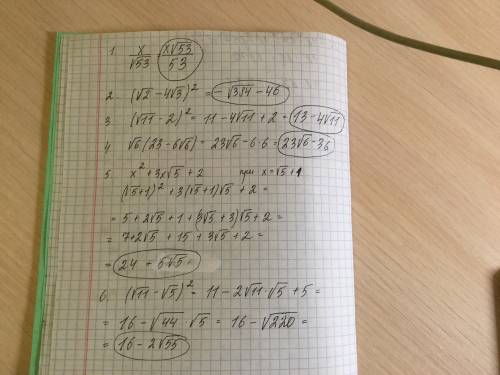 1. x/√53 x√53/53
2. (√2 - 4√3)² = -√384 - 46
3 (√11 - 2)² = 11 - 4√11 + 2 = 13 - 4√11
4 √6(23 - 6√6) = 23√6 - 6·6 = 23√6 - 36
5. x² + 3x√5 + 2 при x = √5 + 1
(√5+1)² + 3(√5+1)√5 + 2 =
= 5 + 2√5 + 1 + (3√5 + 3)√5 + 2 =
= 7 + 2√5 + 15 + 3√5 + 2 =
= 24 + 5√5 =
6. (√11 - √5)² = 11 - 2√11·√5 + 5 =
= 16 - √44 · √5 = 16 - √220 =
= 16 - 2√55